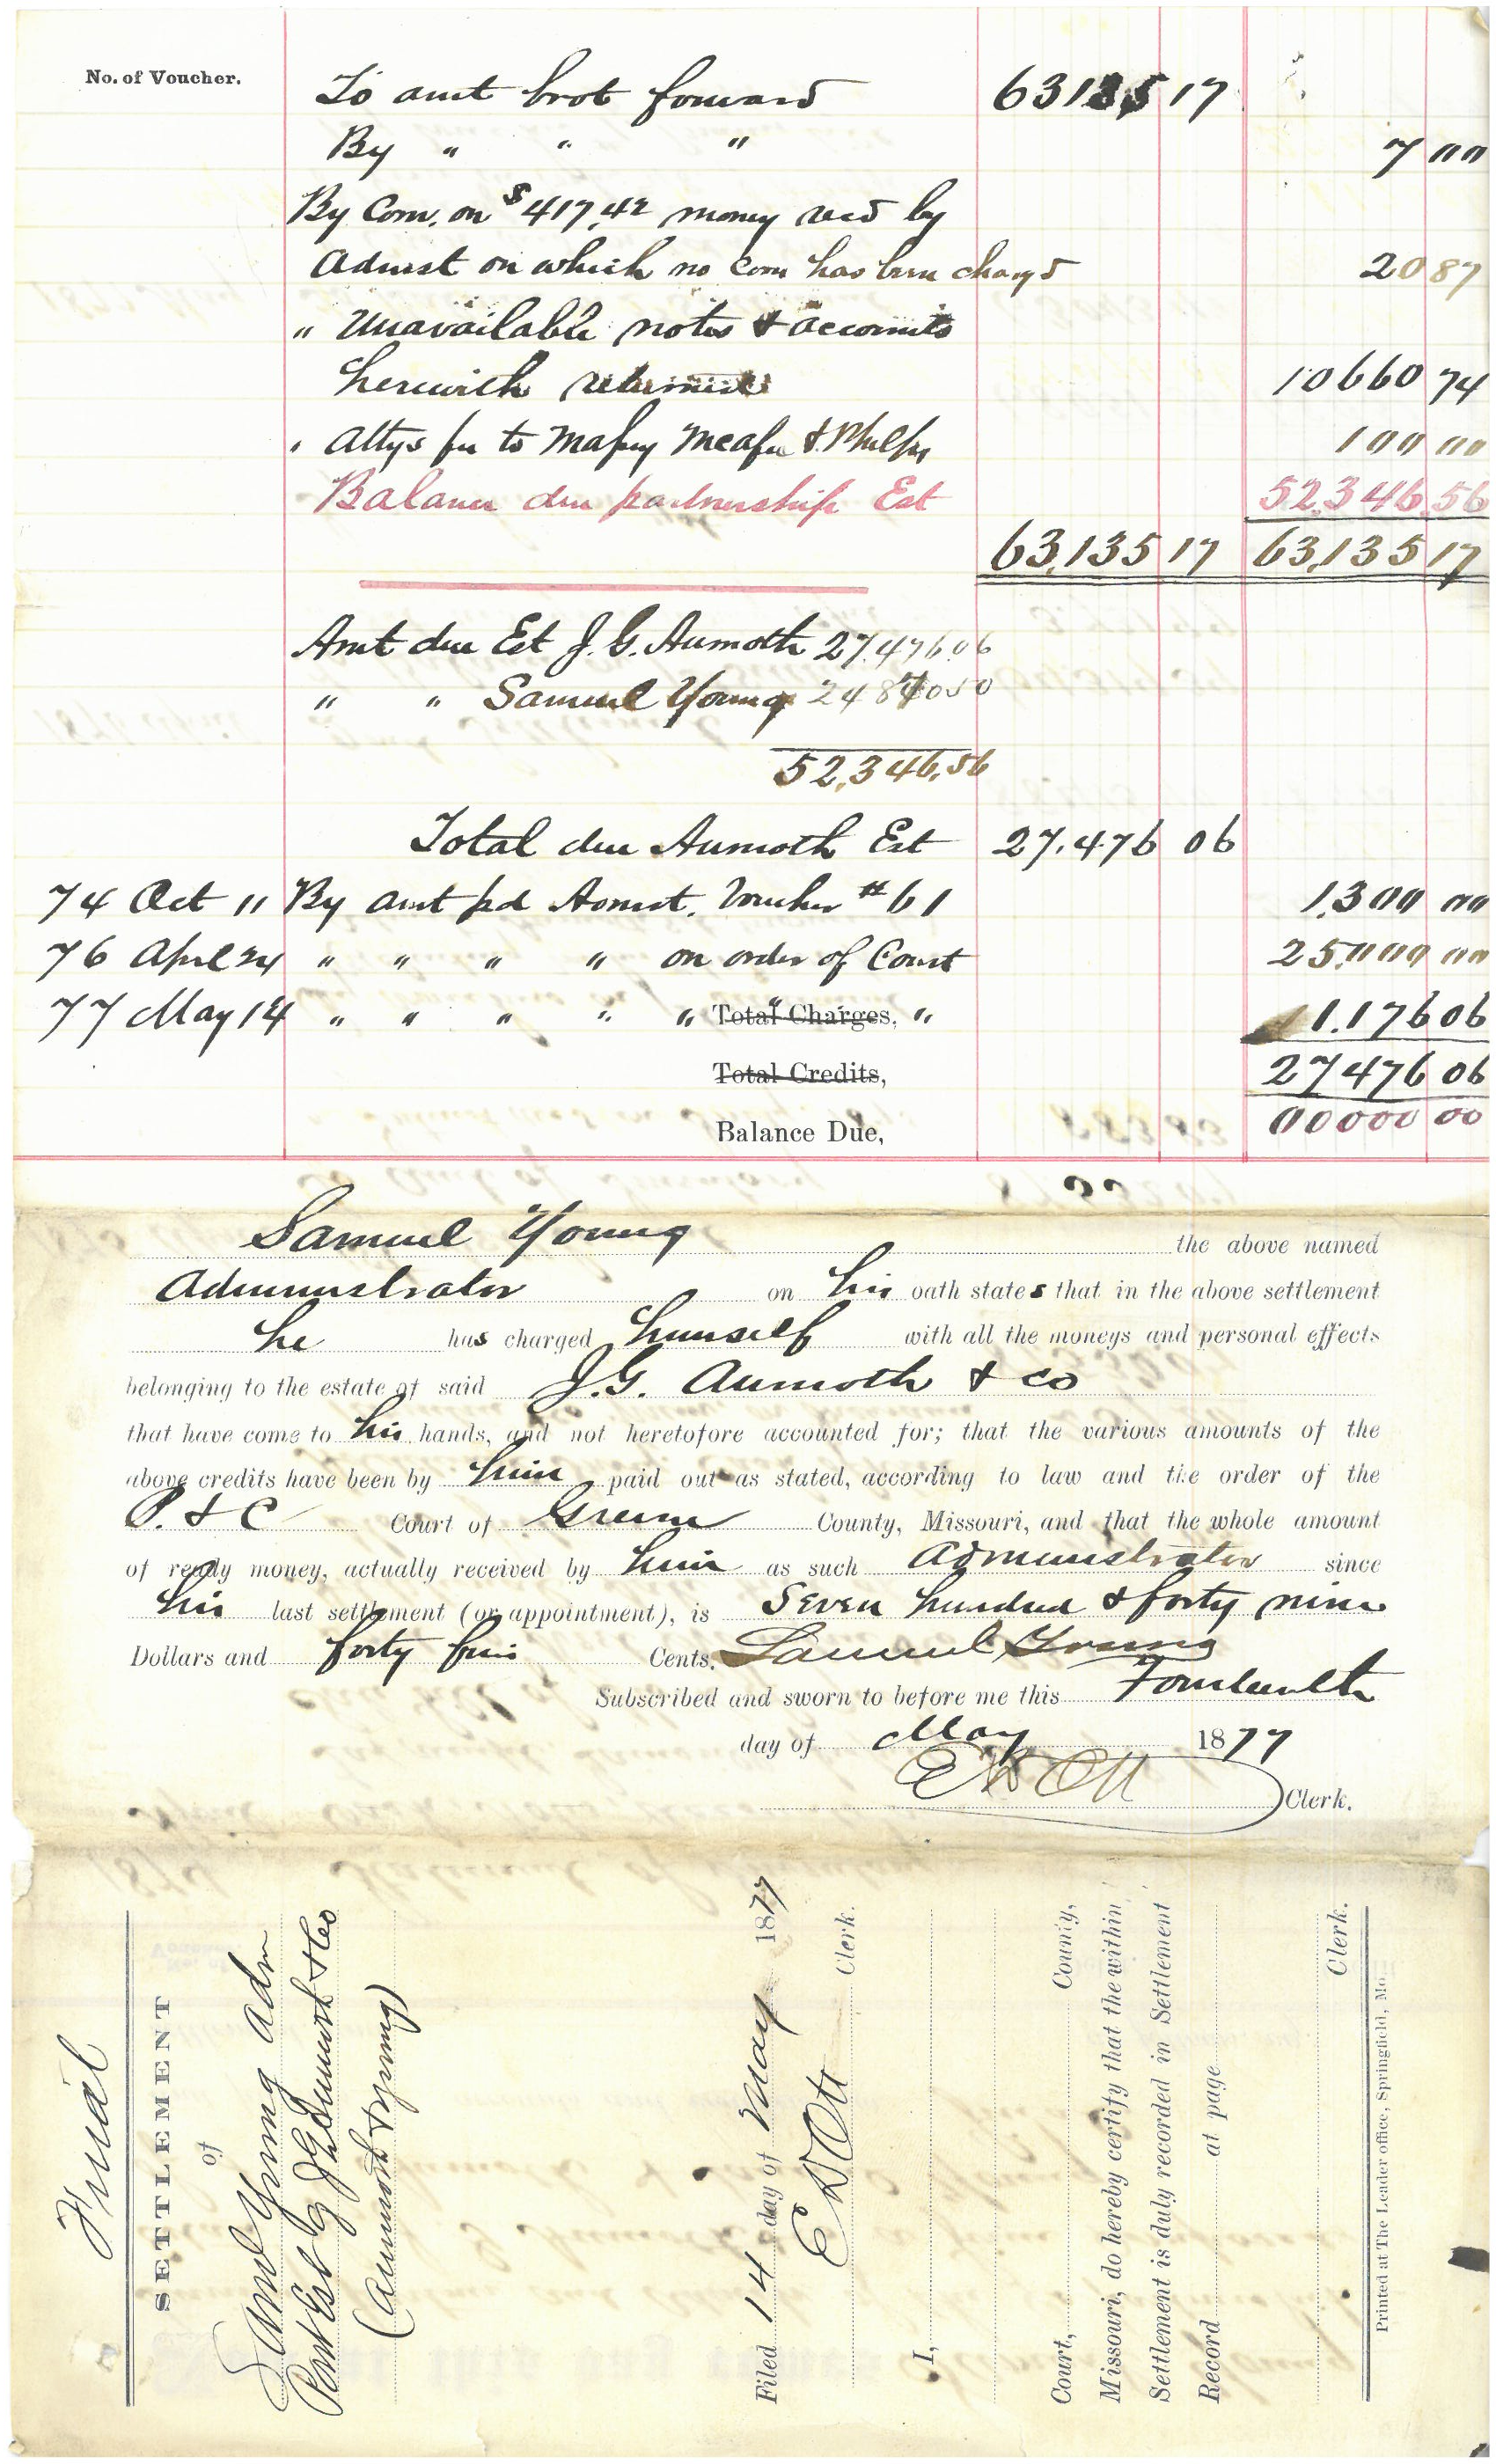 No. of Voucher.
To amt brot forward 63135 17
By " " " 7 00
By Com. on $417.42 money recd by
Admst on which no Com has been chargd 20 87
" Unavailable notes & accounts
herewith returned 10660 74
" Attys fee to Massey McAfee & Phelps 100 00
Balance due partnership Est 52,346.56
63,135 17 63,135 17
Amt due Est J. G. Aumoth 27.476.06
" " Samuel Young 24870 50
52,346.56
Total due Aumoth Est 27.476 06
74 Oct 11 By amt pd Admst. Voucher # 61 1,300 00
76 April 24 " " " " on order of Court 25,000 00
77 May 14 " " " " " Total Charges, " 1.176 06
Total Credits, 27476 06
Balance Due, 00000 00
Samuel Young the above named
Administrator on his oath states that in the above settlement
he has charged himself with all the moneys and personal effects
belonging to the estate of said J. G. Aumoth & Co
that have come to his hands, and not heretofore accounted for; that the various amounts of the
above credits have been by him paid out as stated, according to law and the order of the
P. & C Court of Greene County, Missouri, and that the whole amount
of ready money, actually received by him as such Administrator since
his last settlement (or appointment), is Seven hundred & forty nine
Dollars and forty five Cents. Samuel Young
Subscribed and sworn to before me this Fourteenth
day of May 1877
E D Ott Clerk.
Final
SETTLEMENT
of
Saml Young Adm
Part Est of J G Aumoth & Co
(Aumoth & Young)
Filed 14 day of May 1877
E D Ott Clerk.
I,
Court, County,
Missouri, do hereby certify that the within
Settlement is duly recorded in Settlement
Record at page
Clerk.
Printed at The Leader office, Springfield, Mo.